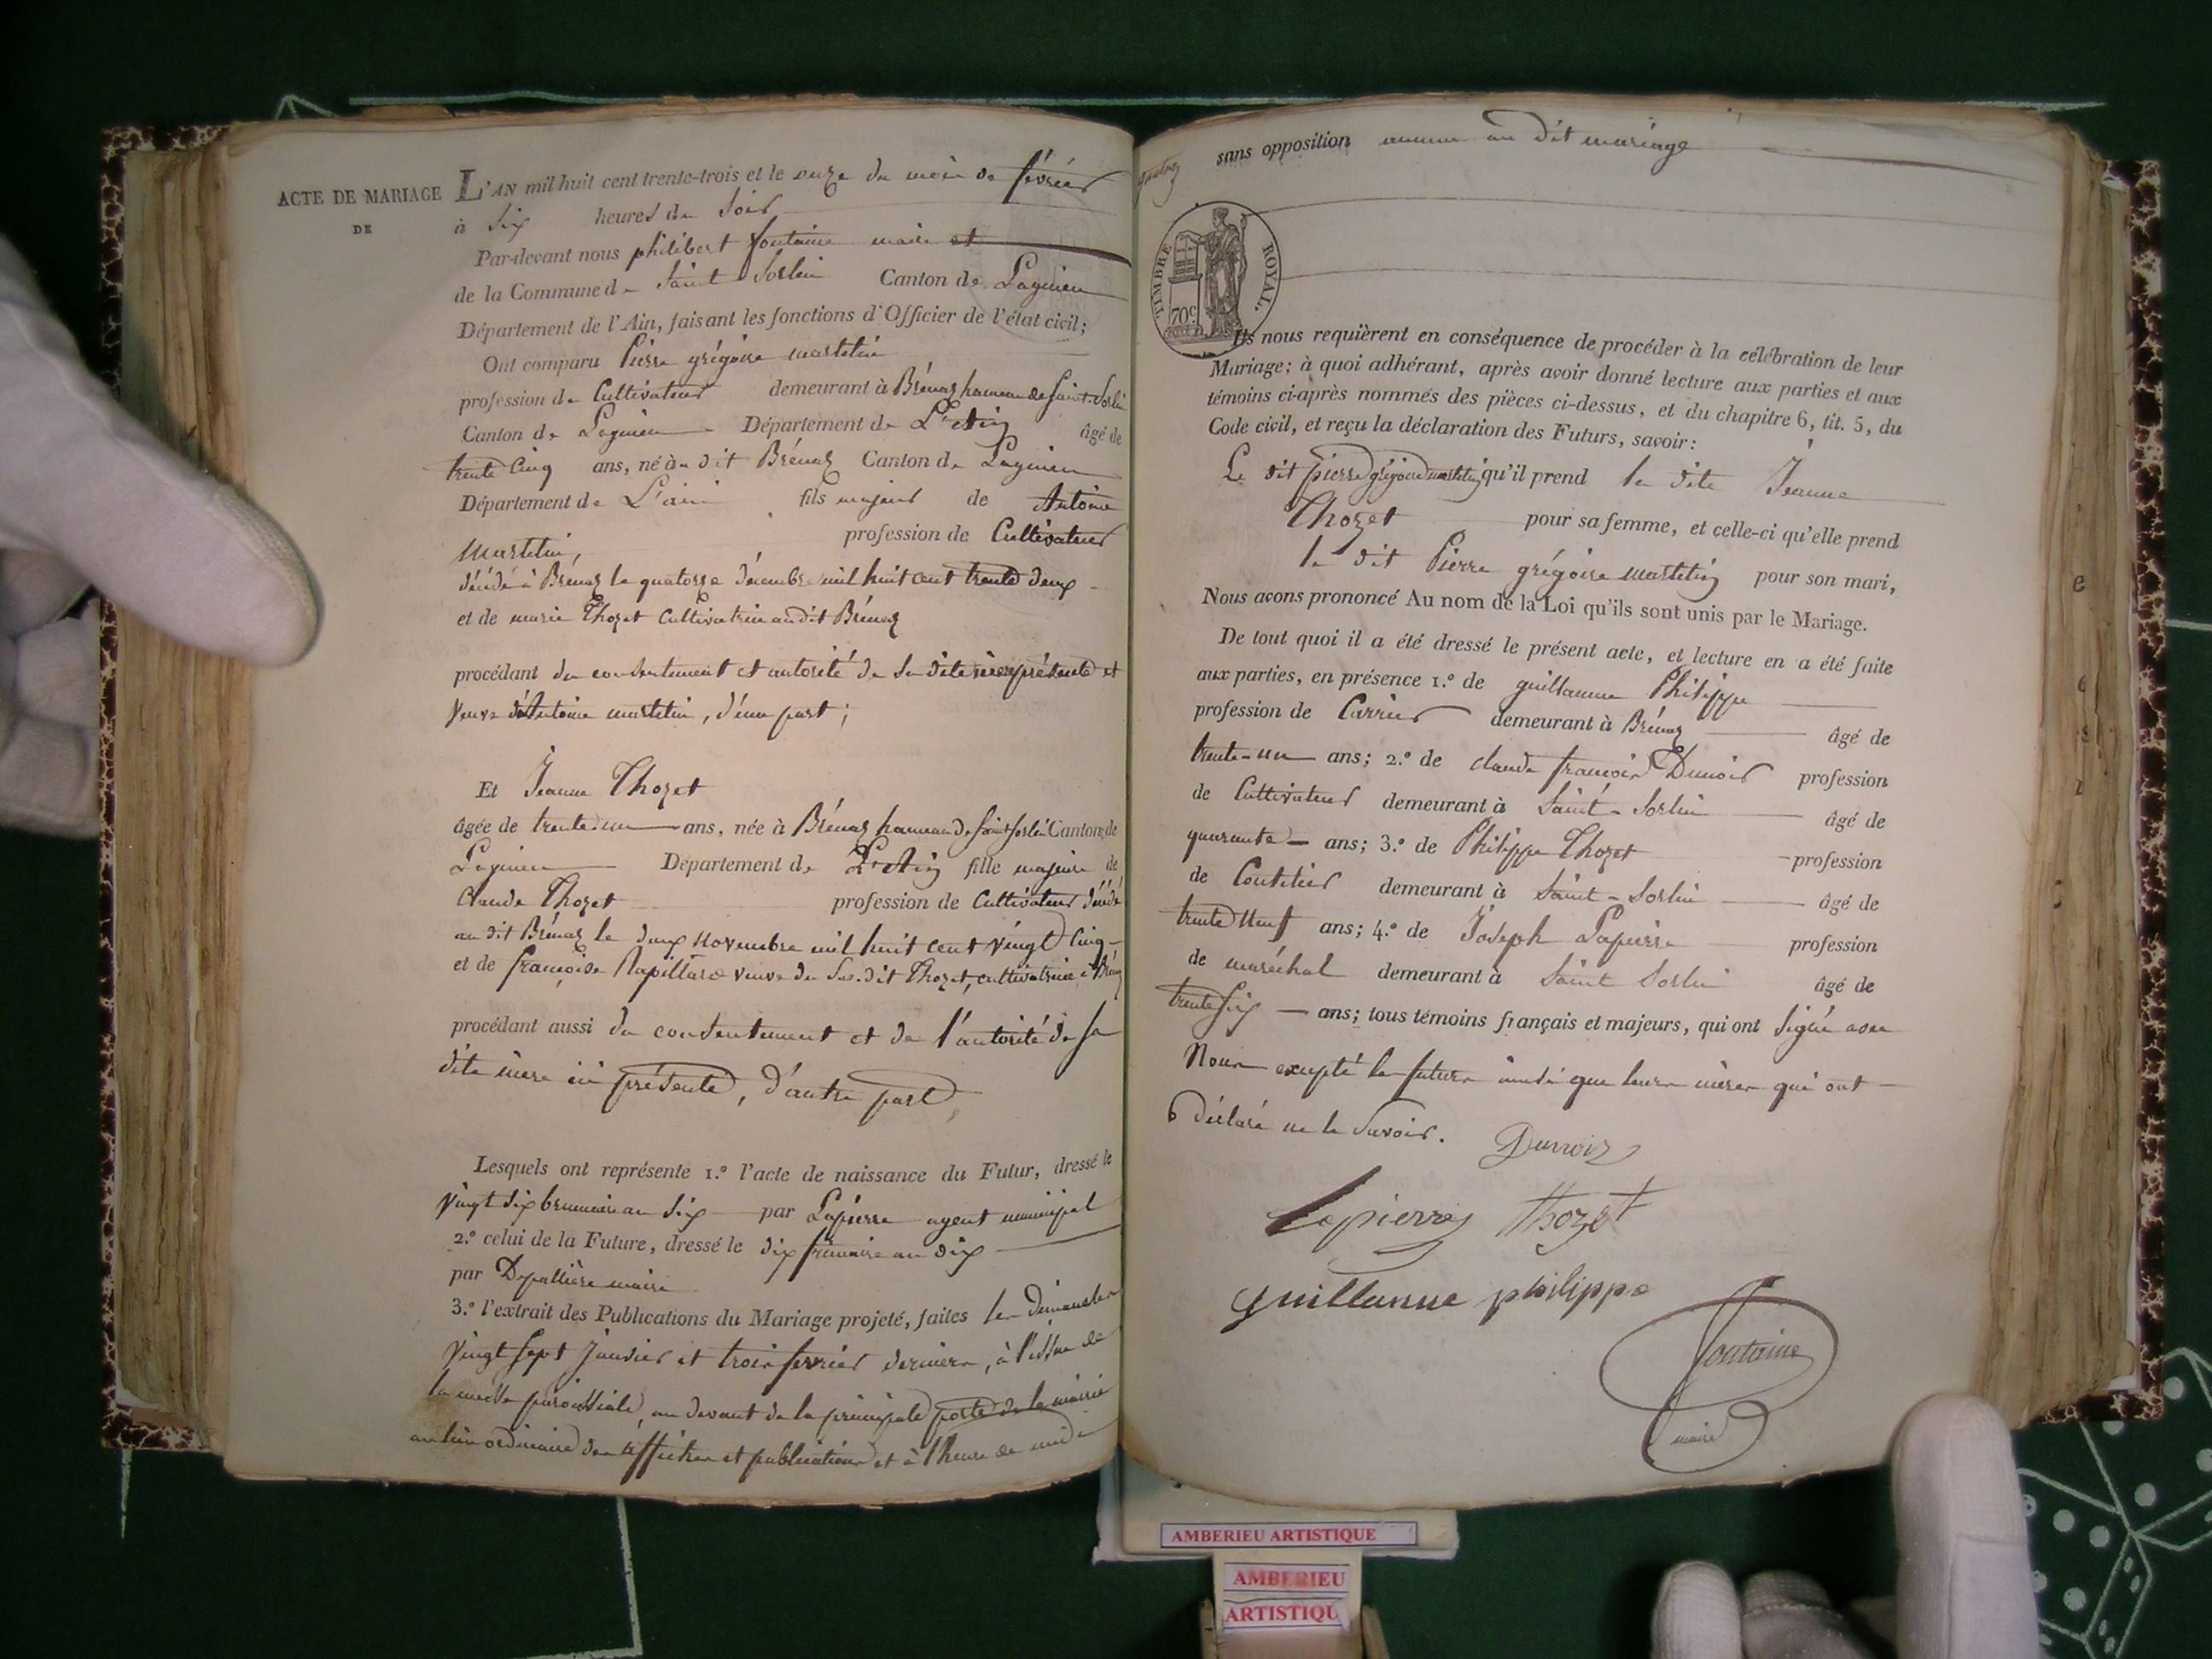 ACTE DE MARIAGE
DE
L'AN mil huit cent trente-trois et le onze du mois de février
à Six heures du Soir
Par-devant nous philibert fontaine maire et
de la Commune de Saint Sorlin Canton de Lagnieu
Département de l'Ain, faisant les fonctions d'Officier de l'état civil;
Ont comparu Pierre grégoire martelin
profession de Cultivateur demeurant à Brénaz hameau de Saint-Sorlin
Canton de Lagnieu Département de L'Ain âgé de
trente Cinq ans, né au dit Brénaz Canton de Lagnieu
Département de L'ain fils majeur de Antoine
Martelin, profession de Cultivateur
décédé à Brénaz le quatorze décembre mil huit cent trente deux
et de marie Thozet Cultivatrice au dit Brénaz
procédant du consentement et autorité de sa dite mère présente et
Veuve d'Antoine martelin, d'une part;
Et Jeanne Thozet
âgée de trente un ans, née à Brénaz hameau de Saint Sorlin Canton de
Lagnieu Département de L'Ain fille majeure de
Claude Thozet profession de Cultivateur décédé
au dit Brénaz le deux Novembre mil huit cent vingt Cinq
et de françoise Rapillard veuve du Sus-dit Thozet, cultivatrice à Brénaz
procédant aussi du consentement et de l'autorité de sa
dite mère ici présente, d'autre part,
Lesquels ont représenté 1.º l'acte de naissance du Futur, dressé le
Vingt six brumaire an Six par Lapierre agent municipal
2.º celui de la Future, dressé le dix frimaire an dix
par Depallière maire
3.º l'extrait des Publications du Mariage projeté, faites les Dimanches
Vingt Sept Janvier et trois fevrier derniers, à l'issue de
la messe paroissiale, au devant de la principale porte de la mairie
au lieu ordinaire des affiches et publications et à l'heure de midi
sans opposition aucune au dit mariage
TIMBRE ROYAL.
70c
Ils nous requièrent en conséquence de procéder à la célébration de leur
Mariage; à quoi adhérant, après avoir donné lecture aux parties et aux
témoins ci-après nommés des pièces ci-dessus, et du chapitre 6, tit. 5, du
Code civil, et reçu la déclaration des Futurs, savoir:
Le dit pierre grégoire martelin qu'il prend la dite Jeanne
Thozet pour sa femme, et celle-ci qu'elle prend
le dit Pierre grégoire martelin pour son mari,
Nous avons prononcé Au nom de la Loi qu'ils sont unis par le Mariage.
De tout quoi il a été dressé le présent acte, et lecture en a été faite
aux parties, en présence 1.º de guillaume Philippe
profession de Carrier demeurant à Brénaz âgé de
trente-un ans; 2.º de claude françois Dunoir profession
de Cultivateur demeurant à Saint-Sorlin âgé de
quarante ans; 3.º de Philippe Thozet profession
de Coutelier demeurant à Saint-Sorlin âgé de
trente Neuf ans; 4.º de Joseph Lapierre profession
de maréchal demeurant à Saint Sorlin âgé de
trente six ans; tous témoins français et majeurs, qui ont Signé avec
Nous excepté les futurs ainsi que leurs mères qui ont
déclaré ne le Savoir.
Dunoir
Lapierre Thozet
guillaume philippe
fontaine
maire
AMBERIEU ARTISTIQUE
AMBERIEU
ARTISTIQU